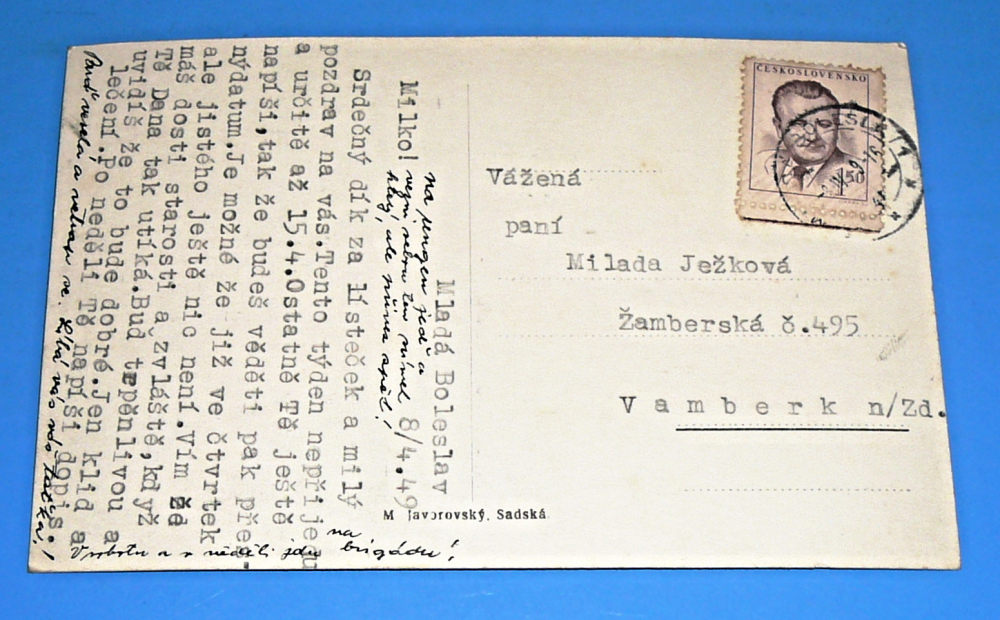 Mladá Boleslav
8/4.49
Milko!
Srdečný dík za lísteček a milý
pozdrav na vás.Tento týden nepřijedu
a určitě až 15.4.Ostatně Tě ještě
napíši,tak že budeš věděti pak pře-
nýdatum.Je možné že již ve čtvrtek
ale jistého ještě nic není.Vím že
máš dosti starosti a zvláště,když
Tě Dana tak utíká.Buď trpěnlivou a
uvidíš že to bude dobré.Jen klid a
lečení.Po neděli Tě napíši dopis.
V sobotu a v neděli jdu na brigádu!
M Javorovský, Sadská
ČESKOSLOVENSKO
1.50
Vážená
paní
Milada Ježková
Žamberská č.495
Vamberk n/Zd.